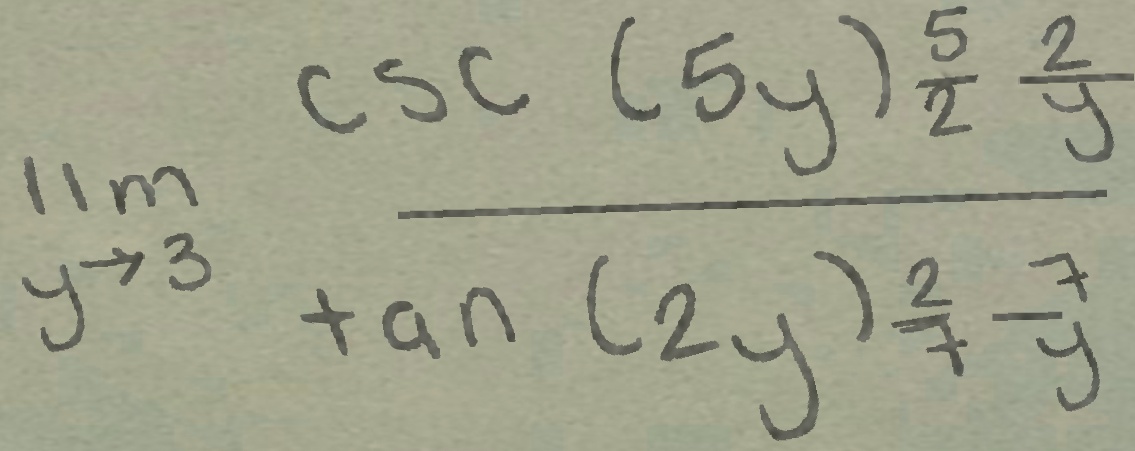 \lim_{y \to 3} \frac{\csc (5y) \frac{5}{2} \frac{2}{y}}{\tan (2y) \frac{2}{7} \frac{7}{y}}